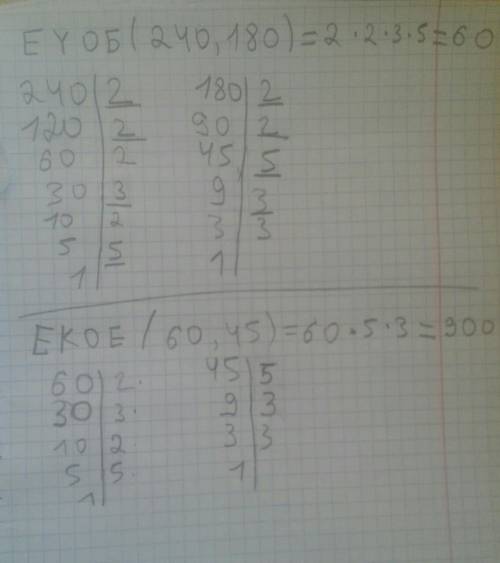 ЕУОБ(240,180)=2·2·3·5=60
240|2 180|2
120|2 90|2
60|2 45|5
30|3 9|3
10|2 3|3
5|5 1
1
ЕКОЕ(60,45)=60·5·3=900
60|2· 45|5
30|3· 9|3
10|2· 3|3
5|5· 1
1